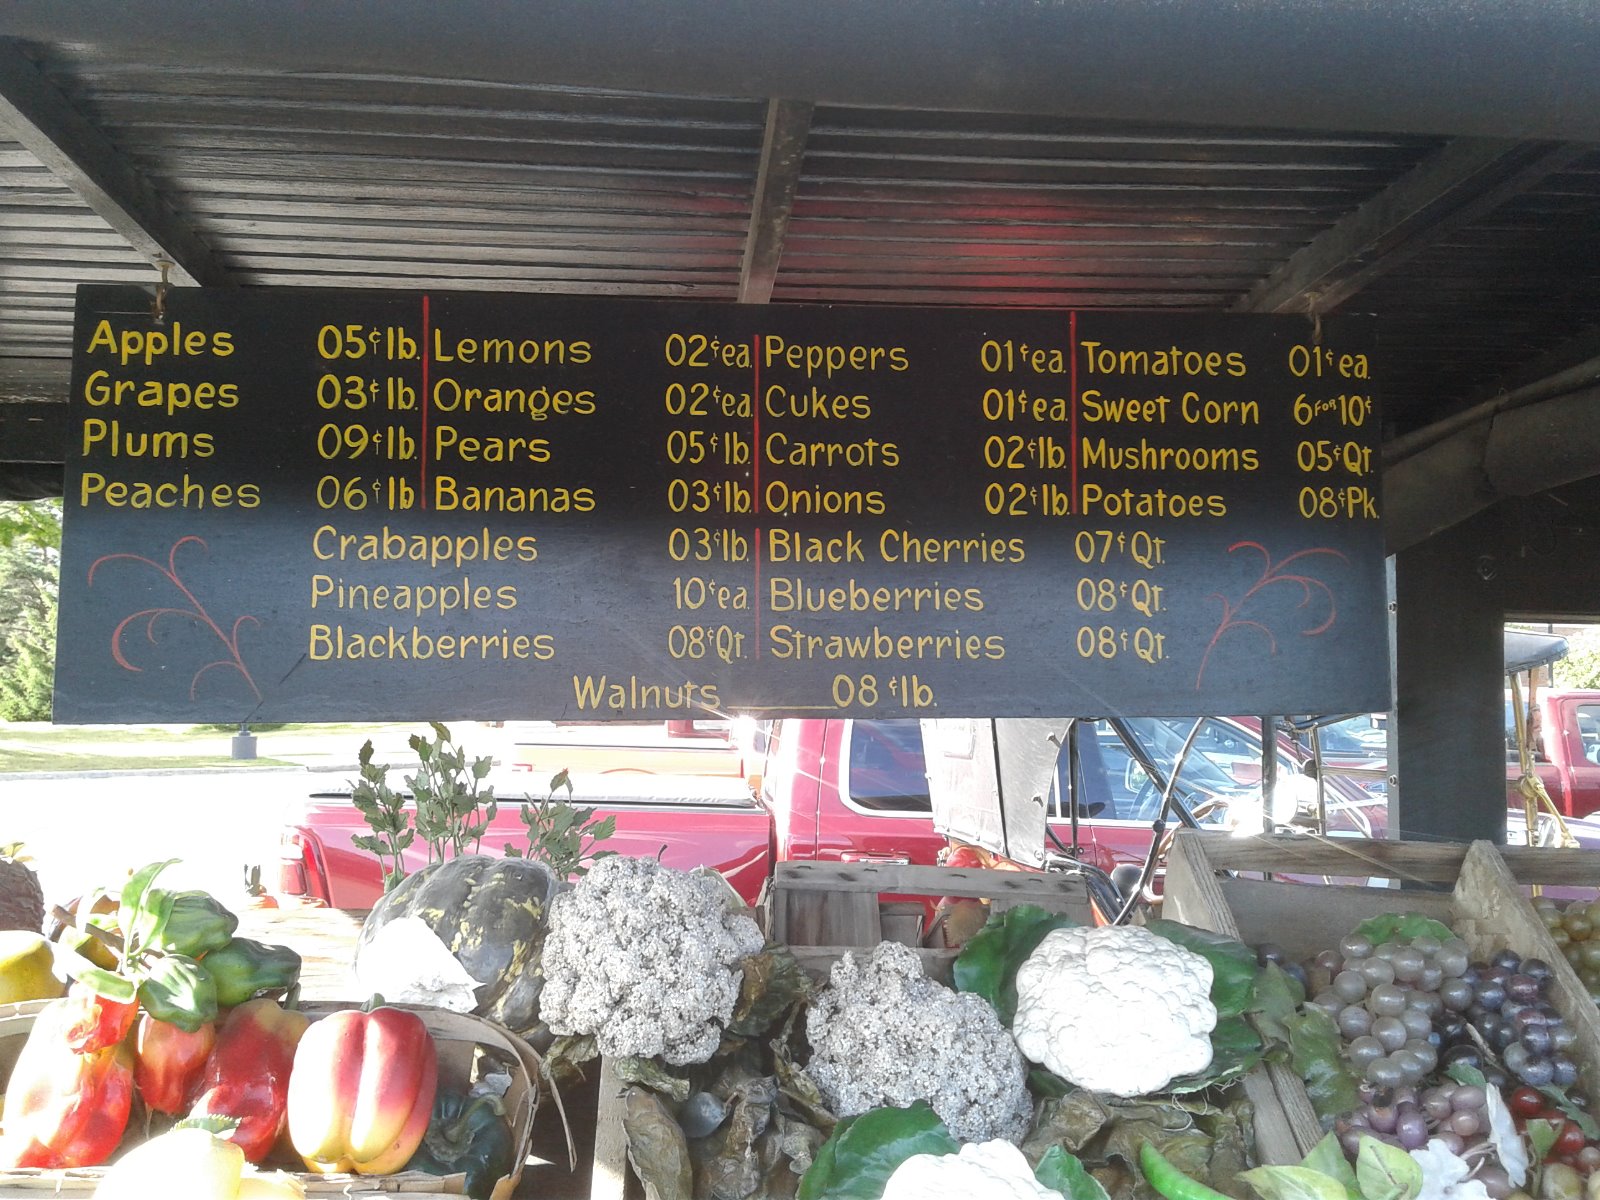 Apples 05¢lb. Lemons 02¢ea. Peppers 01¢ea. Tomatoes 01¢ea.
Grapes 03¢lb. Oranges 02¢ea. Cukes 01¢ea. Sweet Corn 6 FOR 10¢
Plums 09¢lb. Pears 05¢lb. Carrots 02¢lb. Mushrooms 05¢Qt.
Peaches 06¢lb Bananas 03¢lb. Onions 02¢lb. Potatoes 08¢Pk.
Crabapples 03¢lb. Black Cherries 07¢Qt.
Pineapples 10¢ea. Blueberries 08¢Qt.
Blackberries 08¢Qt. Strawberries 08¢Qt.
Walnuts 08¢lb.